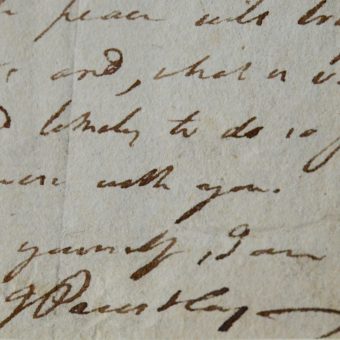 peace will
and, what is
likely to do so
were with you.
yourself, I am
J Priestley